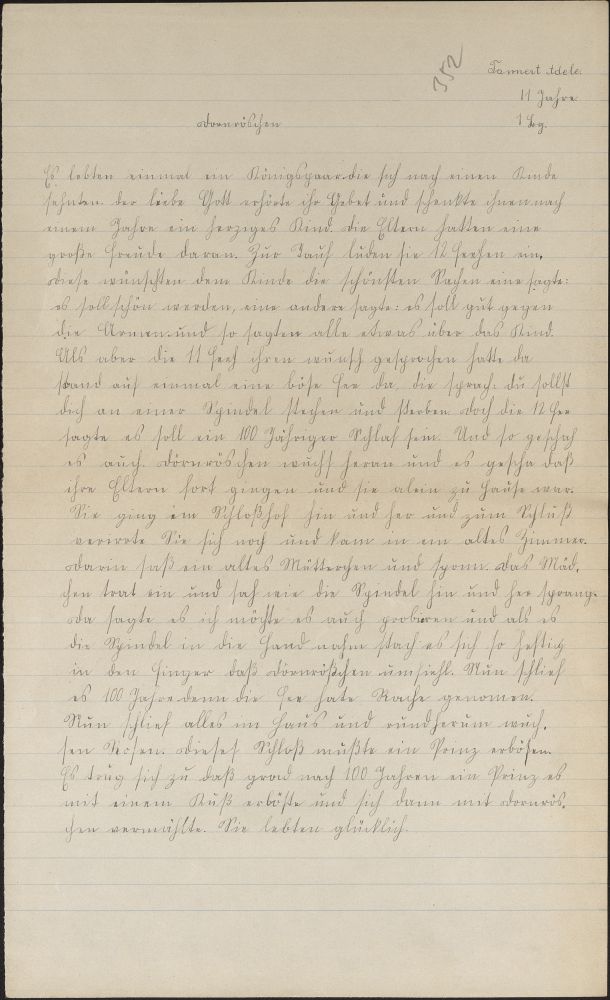 352
Tannert Adele.
11 Jahre
Dornröschen
Es lebten einmal ein Königspaar die sich nach einen Kinde
sehnten. der liebe Gott erhörte ihr Gebet und schenkte ihnen nach
einem Jahre ein herziges Kind. die Eltern hatten eine
große Freude daran. Zur Tauf luden sie 12 Feehen ein,
diese wünschten dem Kinde die schönsten Sachen eine sagte:
es soll schön werden, eine andere sagte: es soll gut gegen
die Armen und so sagten alle etwas über das Kind.
Als aber die 11 Feeh ihren wunsch gesprochen hatte da
stand auf einmal eine böse Fee da, die sprach: du sollst
dich an einer Spindel stechen und sterben doch die 12 Fee
sagte es soll ein 100 Jähriger Schlaf sein. Und so geschah
es auch. Dörnröschen wuchs heran und es gescha daß
ihre Eltern fort gingen und sie alein zu Hause war.
Sie ging im Schloßhof hin und her und zum Schluß
verirrte Sie sich noch und kam in ein altes Zimmer.
Darin saß ein altes Mütterchen und sponn. Das Mäd,
chen trat ein und sah wie die Spindel hin und her sprang.
Da sagte es ich möchte es auch probiren und als es
die Spindel in die Hand nahm stach es sich so heftig
in den Finger daß Dörnrößchen umfiehl. Nun schlief
es 100 Jahre denn die Fee hate Rache genomen.
Nun schlief alles im Haus und rundherum wuch,
sen Rosen. Dieses Schloß mußte ein Prinz erlösen.
Es trug sich zu daß grad nach 100 Jahren ein Prinz es
mit einem Kuß erlöste und sich dann mit Dornrös,
chen vermählte. Sie lebten glücklich.